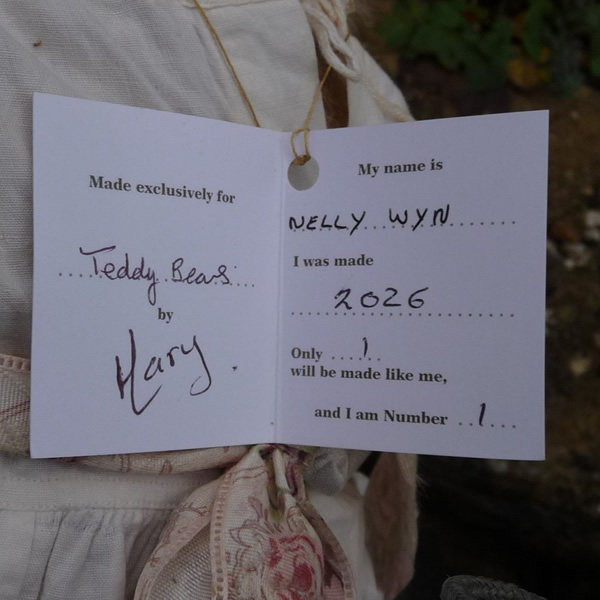 Made exclusively for
Teddy Bears
by
Mary.
My name is
NELLY WYN
I was made
2026
Only 1
will be made like me,
and I am Number 1